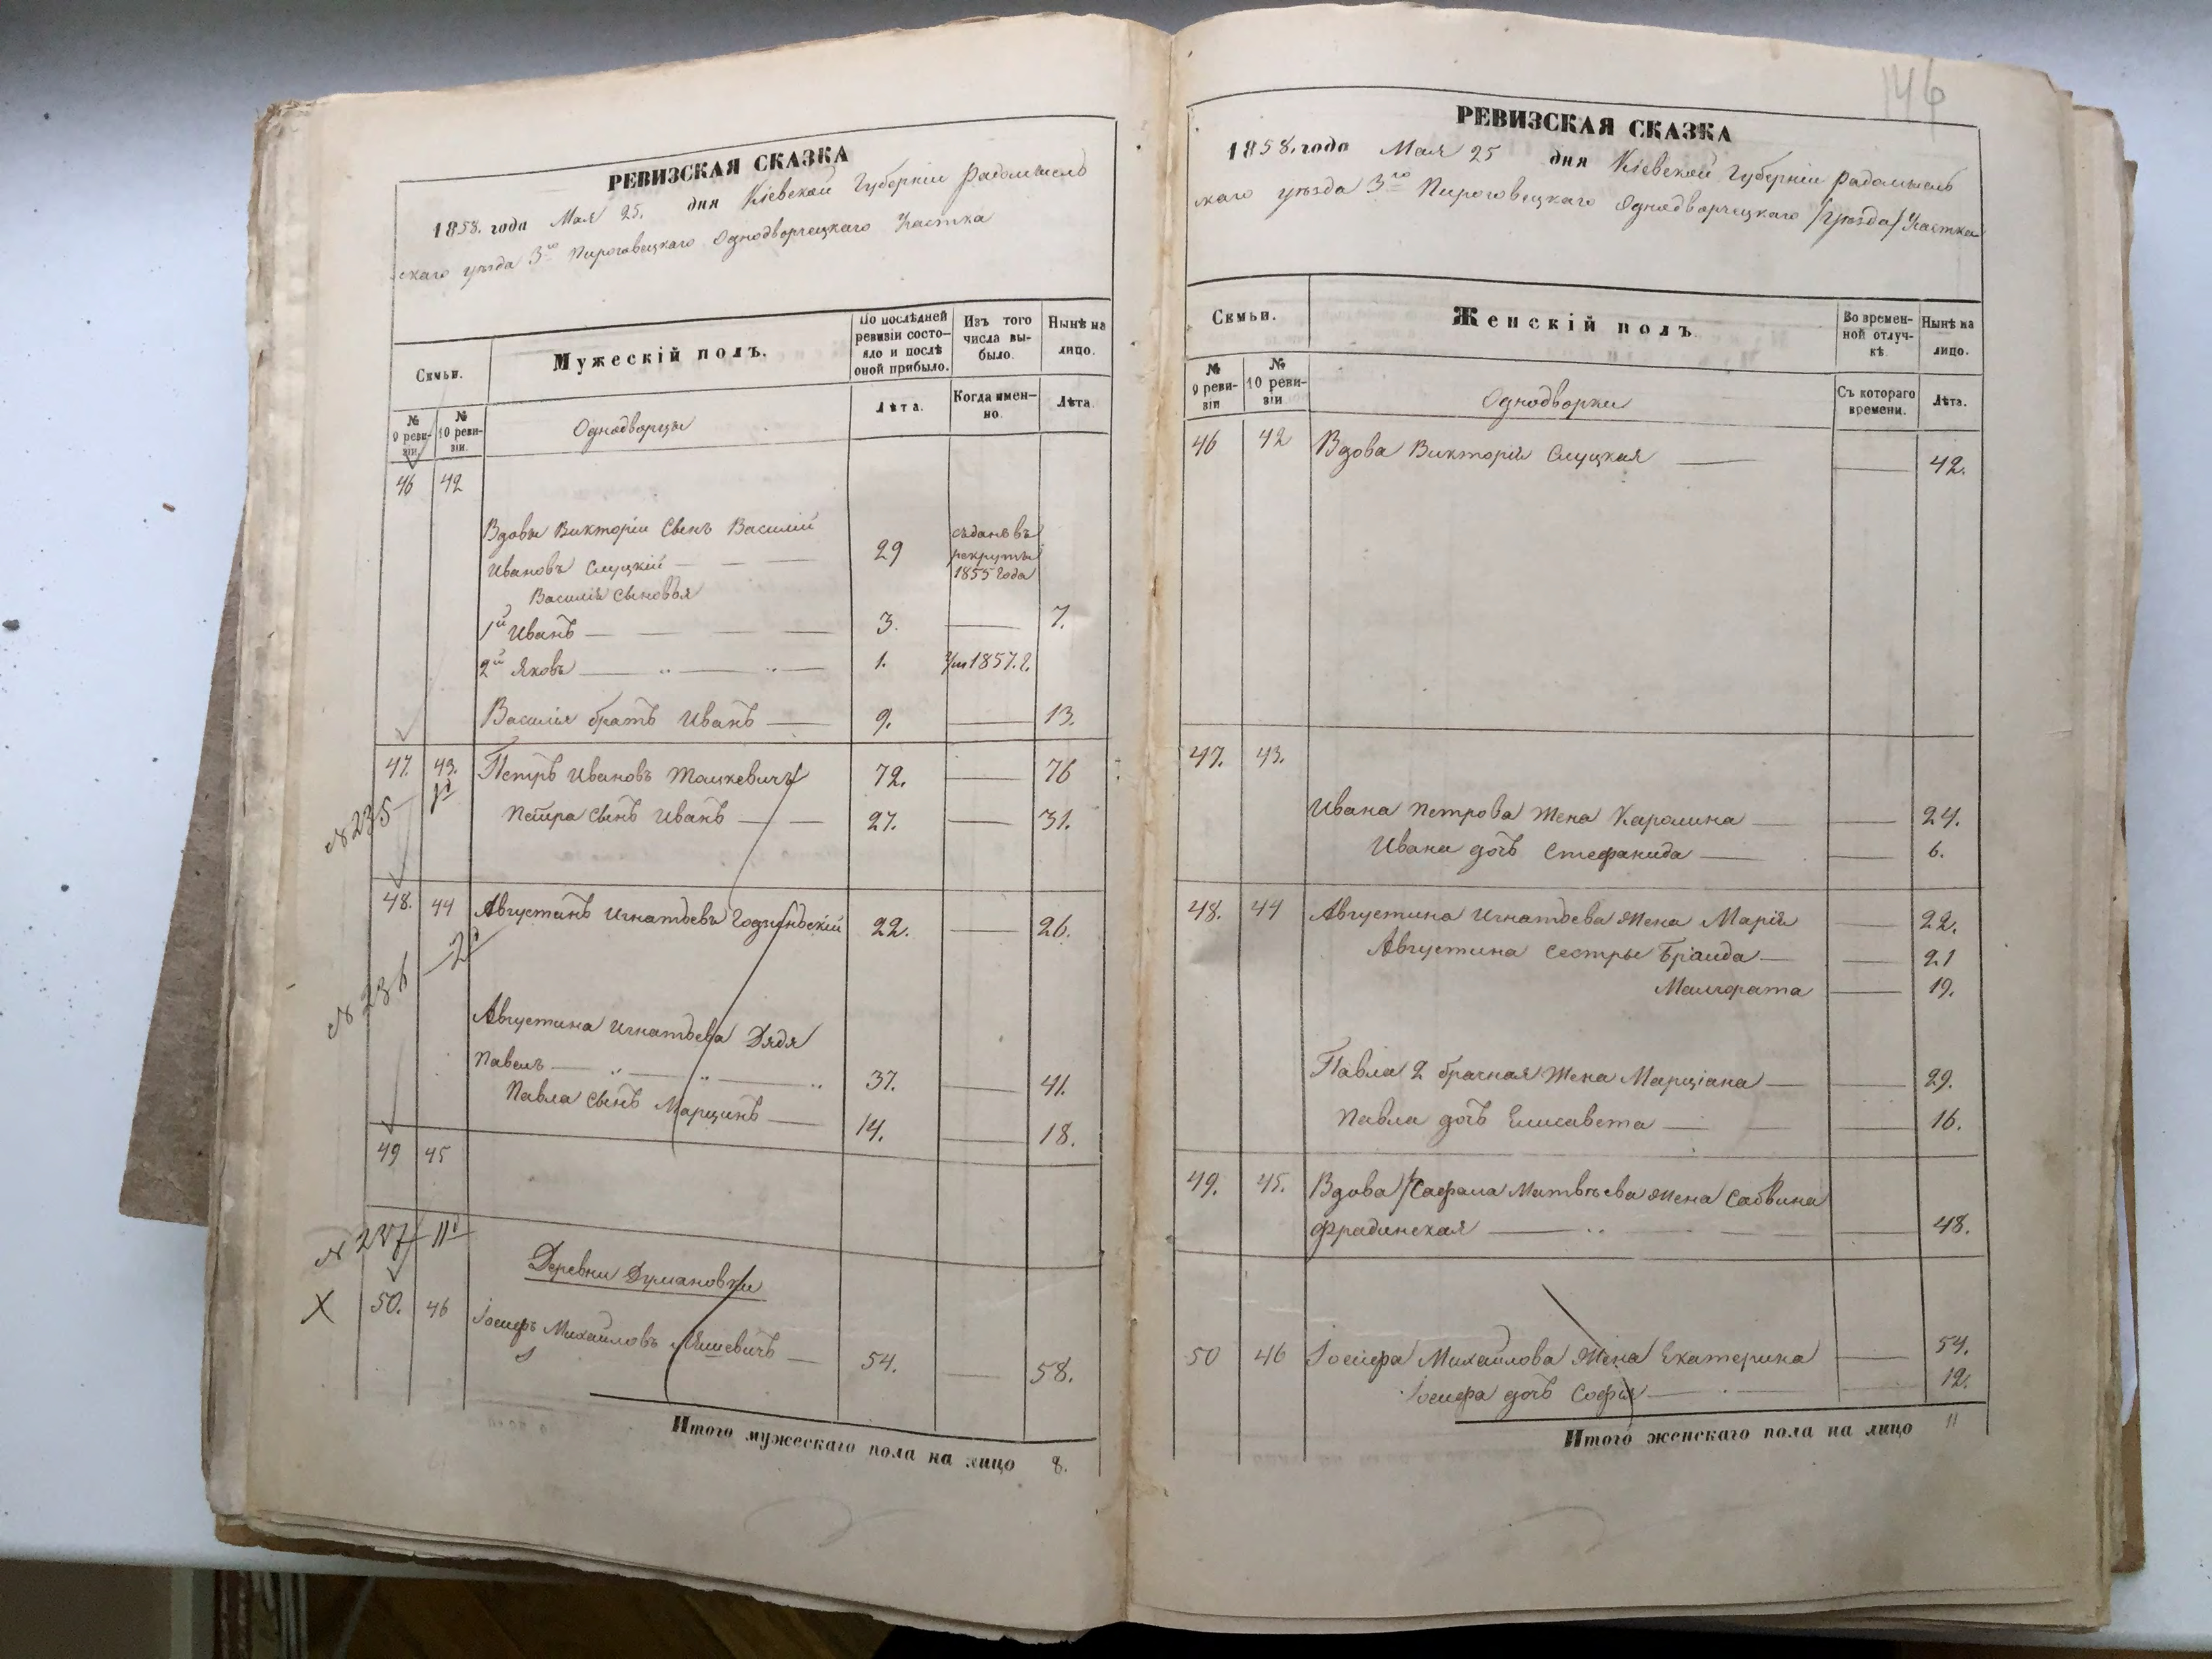 РЕВИЗСКАЯ СКАЗКА
1858. года Мая 25. дня Кіевской Губерніи Радомысль
скаго уѣзда 3го Пироговецкаго Однодворческаго Участка
Семьи.
Мужескій полъ.
По послѣдней ревизіи состо-
яло и послѣ
оной прибыло.
Изъ того
числа вы-
было.
Нынѣ на
лицо.
№
9 реви-
зіи.
№
10 реви-
зіи.
Однодворцы
Лѣта.
Когда имен-
но.
Лѣта.
46 42
Вдовы Викторіи сынъ Василій
Ивановъ Слуцкій 29 сданъ въ рекруты 1855 года
Василія сыновья
1й Иванъ 3. 7.
2й Яковъ 1. 1857. г.
Василія братъ Иванъ 9. 13.
47. 43. Петръ Ивановъ 72. 76
№ 235
Петра сынъ Иванъ 27. 31.
48. 44 Августинъ Игнатьевъ 22. 26.
№ 236
Августина Игнатьева Дядя
Павелъ 37. 41.
Павла сынъ Марцинъ 14. 18.
49 45
№ 237
Деревни Думановки
X 50. 46 Іосифъ Михайловъ 54. 58.
Итого мужескаго пола на лицо 8.
146
РЕВИЗСКАЯ СКАЗКА
1858. года Мая 25 дня Кіевской Губерніи Радомысль
скаго уѣзда 3го Пироговецкаго Однодворческаго /уѣзда/ Участка
Семьи.
Женскій полъ.
Во времен-
ной отлуч-
кѣ.
Нынѣ на
лицо.
№
9 реви-
зіи
№
10 реви-
зіи
Однодворки
Съ котораго
времени.
Лѣта.
46 42 Вдова Викторія Слуцкая 42.
47. 43.
Ивана Петрова жена Каролина 24.
Ивана дочь Стефанида 6.
48. 44 Августина Игнатьева жена Марія 22.
Августина сестры 21
Малгората 19.
Павла 2 брачная жена Марціана 29.
Павла дочь Елисавета 16.
49. 45. Вдова Матвѣева жена Савина
48.
50 46 Іосифа Михайлова жена Екатерина 54.
Іосифа дочь Софія 12.
Итого женскаго пола на лицо 11